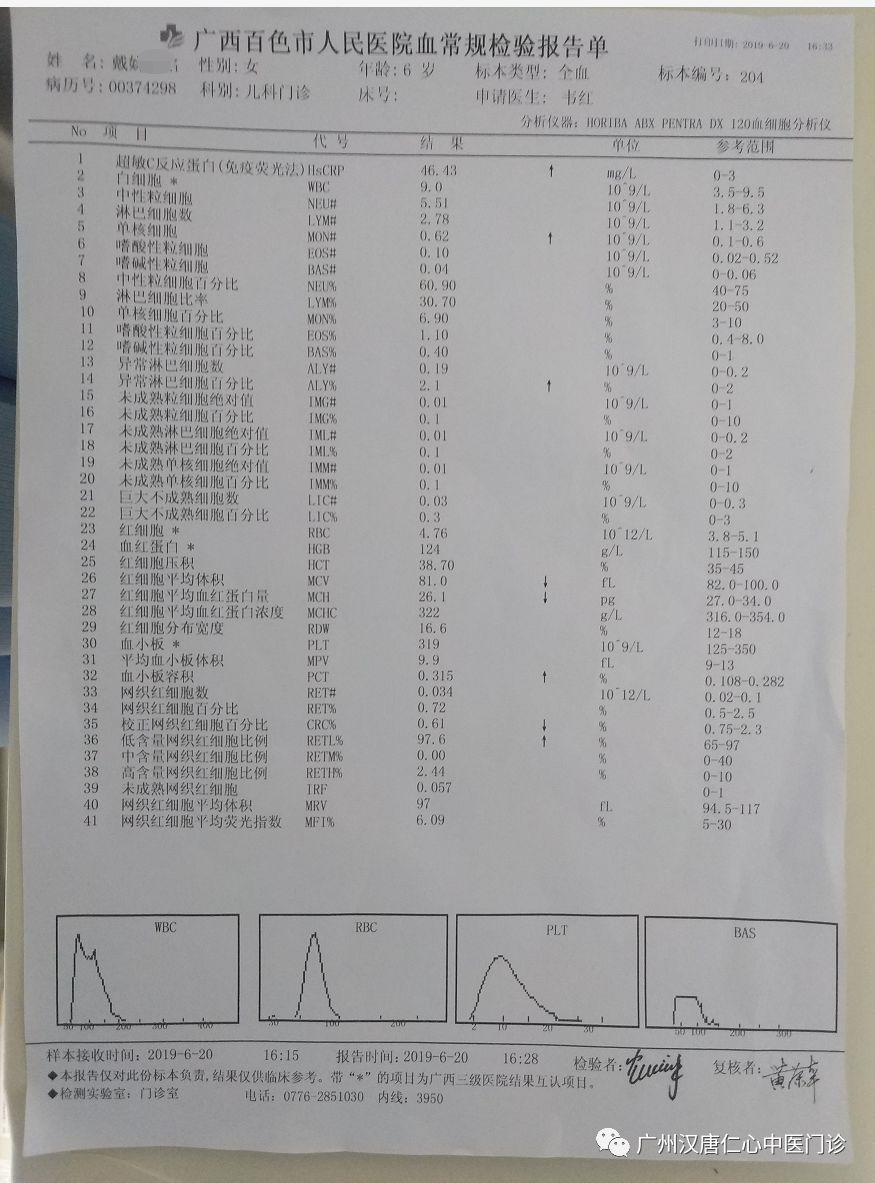 广西百色市人民医院血常规检验报告单
打印日期: 2019-6-20 16:33
姓 名: 戴 性别: 女 年龄: 6 岁 标本类型: 全血 标本编号: 204
病历号: 00374298 科别: 儿科门诊 床号: 申请医生: 韦红
分析仪器: HORIBA ABX PENTRA DX 120血细胞分析仪
No 项 目 代 号 结 果 单位 参考范围
1 超敏C反应蛋白(免疫荧光法) HsCRP 46.43 ↑ mg/L 0-3
2 白细胞 * WBC 9.0 10^9/L 3.5-9.5
3 中性粒细胞 NEU# 5.51 10^9/L 1.8-6.3
4 淋巴细胞数 LYM# 2.78 10^9/L 1.1-3.2
5 单核细胞 MON# 0.62 ↑ 10^9/L 0.1-0.6
6 嗜酸性粒细胞 EOS# 0.10 10^9/L 0.02-0.52
7 嗜碱性粒细胞 BAS# 0.04 10^9/L 0-0.06
8 中性粒细胞百分比 NEU% 60.90 % 40-75
9 淋巴细胞比率 LYM% 30.70 % 20-50
10 单核细胞百分比 MON% 6.90 % 3-10
11 嗜酸性粒细胞百分比 EOS% 1.10 % 0.4-8.0
12 嗜碱性粒细胞百分比 BAS% 0.40 % 0-1
13 异常淋巴细胞数 ALY# 0.19 10^9/L 0-0.2
14 异常淋巴细胞百分比 ALY% 2.1 ↑ % 0-2
15 未成熟粒细胞绝对值 IMG# 0.01 10^9/L 0-1
16 未成熟粒细胞百分比 IMG% 0.1 % 0-10
17 未成熟淋巴细胞绝对值 IML# 0.01 10^9/L 0-0.2
18 未成熟淋巴细胞百分比 IML% 0.1 % 0-2
19 未成熟单核细胞绝对值 IMM# 0.01 10^9/L 0-1
20 未成熟单核细胞百分比 IMM% 0.1 % 0-10
21 巨大不成熟细胞数 LIC# 0.03 10^9/L 0-0.3
22 巨大不成熟细胞百分比 LIC% 0.3 % 0-3
23 红细胞 * RBC 4.76 10^12/L 3.8-5.1
24 血红蛋白 * HGB 124 g/L 115-150
25 红细胞压积 HCT 38.70 % 35-45
26 红细胞平均体积 MCV 81.0 ↓ fL 82.0-100.0
27 红细胞平均血红蛋白量 MCH 26.1 ↓ pg 27.0-34.0
28 红细胞平均血红蛋白浓度 MCHC 322 g/L 316.0-354.0
29 红细胞分布宽度 RDW 16.6 % 12-18
30 血小板 * PLT 319 10^9/L 125-350
31 平均血小板体积 MPV 9.9 fL 9-13
32 血小板容积 PCT 0.315 ↑ % 0.108-0.282
33 网织红细胞数 RET# 0.034 10^12/L 0.02-0.1
34 网织红细胞百分比 RET% 0.72 % 0.5-2.5
35 校正网织红细胞百分比 CRC% 0.61 ↓ % 0.75-2.3
36 低含量网织红细胞比例 RETL% 97.6 ↑ % 65-97
37 中含量网织红细胞比例 RETM% 0.00 % 0-40
38 高含量网织红细胞比例 RETH% 2.44 % 0-10
39 未成熟网织红细胞 IRF 0.057 0-1
40 网织红细胞平均体积 MRV 97 fL 94.5-117
41 网织红细胞平均荧光指数 MFI% 6.09 % 5-30
WBC RBC PLT BAS
50 100 200 300 400 50 100 200 2 10 20 30 50 100 200 300
样本接收时间: 2019-6-20 16:15 报告时间: 2019-6-20 16:28 检验者: 复核者:
◆本报告仅对此份标本负责,结果仅供临床参考。带“*”的项目为广西三级医院结果互认项目。
◆检测实验室: 门诊室 电话: 0776-2851030 内线: 3950
广州汉唐仁心中医门诊